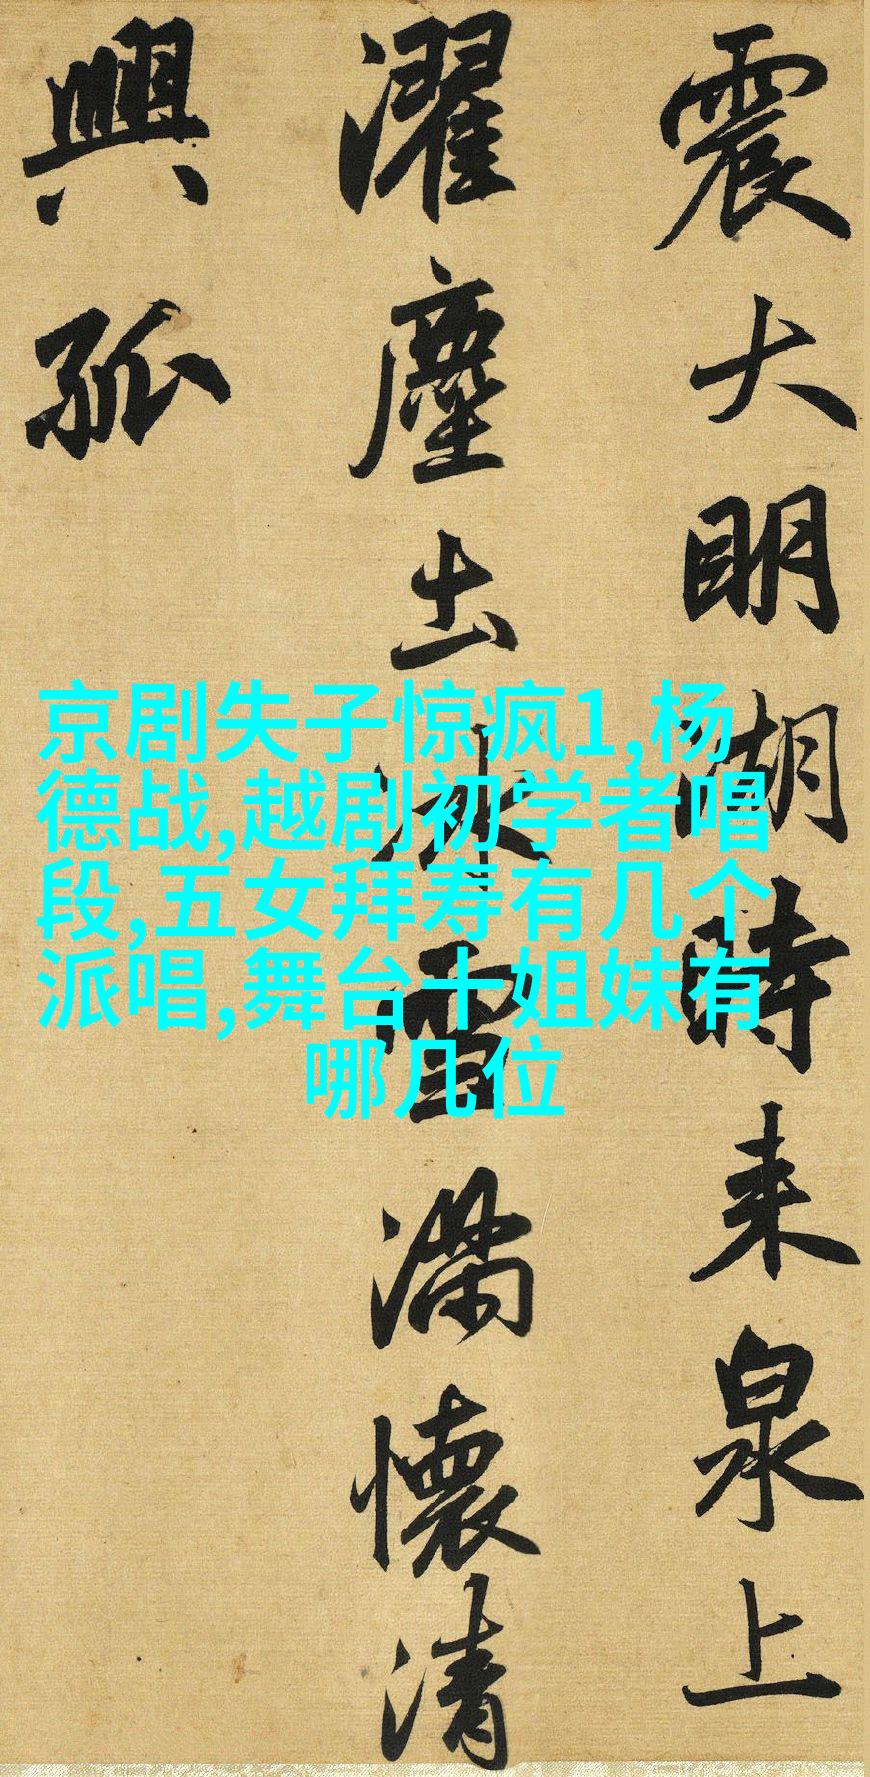 震大明湖時来泉上
濯塵出冰雪滿懷清
興孤
京剧失子惊疯1,杨
德战,越剧初学者唱
段,五女拜寿有几个
派唱,舞台十姐妹有
哪几位